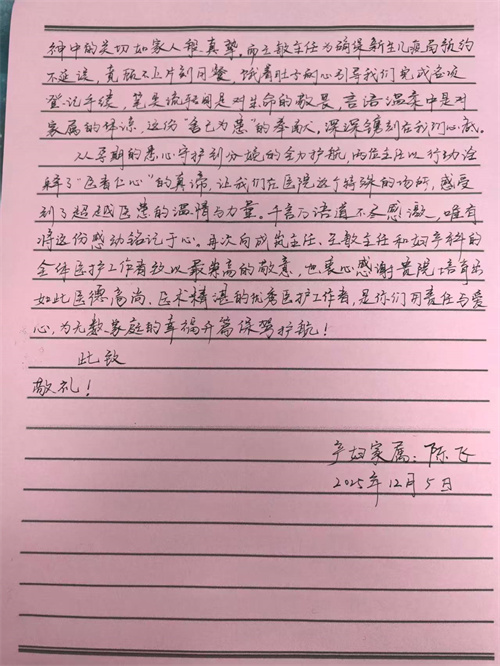 神中的关切如家人般真挚。而王敏主任为确保新生儿疫苗预约
不延误,竟顾不上片刻用餐,饿着肚子耐心引导我们完成各项
登记手续,笔尖流转间是对生命的敬畏,言语温柔中是对
家属的体谅,这份“舍己为患”的奉献,深深镌刻在我们心底。
从孕期的悉心守护到分娩的全力护航,两位主任以行动诠
释了“医者仁心”的真谛,让我们在医院这个特殊的场所,感受
到了超越医患的温情与力量。千言万语道不尽感激,唯有
将这份感动铭记于心。再次向成岚主任、王敏主任和妇产科的
全体医护工作者致以最崇高的敬意,也衷心感谢贵院培育出
如此医德高尚、医术精湛的优秀医护工作者,是你们用责任与爱
心,为无数家庭的幸福开篇保驾护航!
此致
敬礼!
产妇家属:陈飞
2025年12月5日